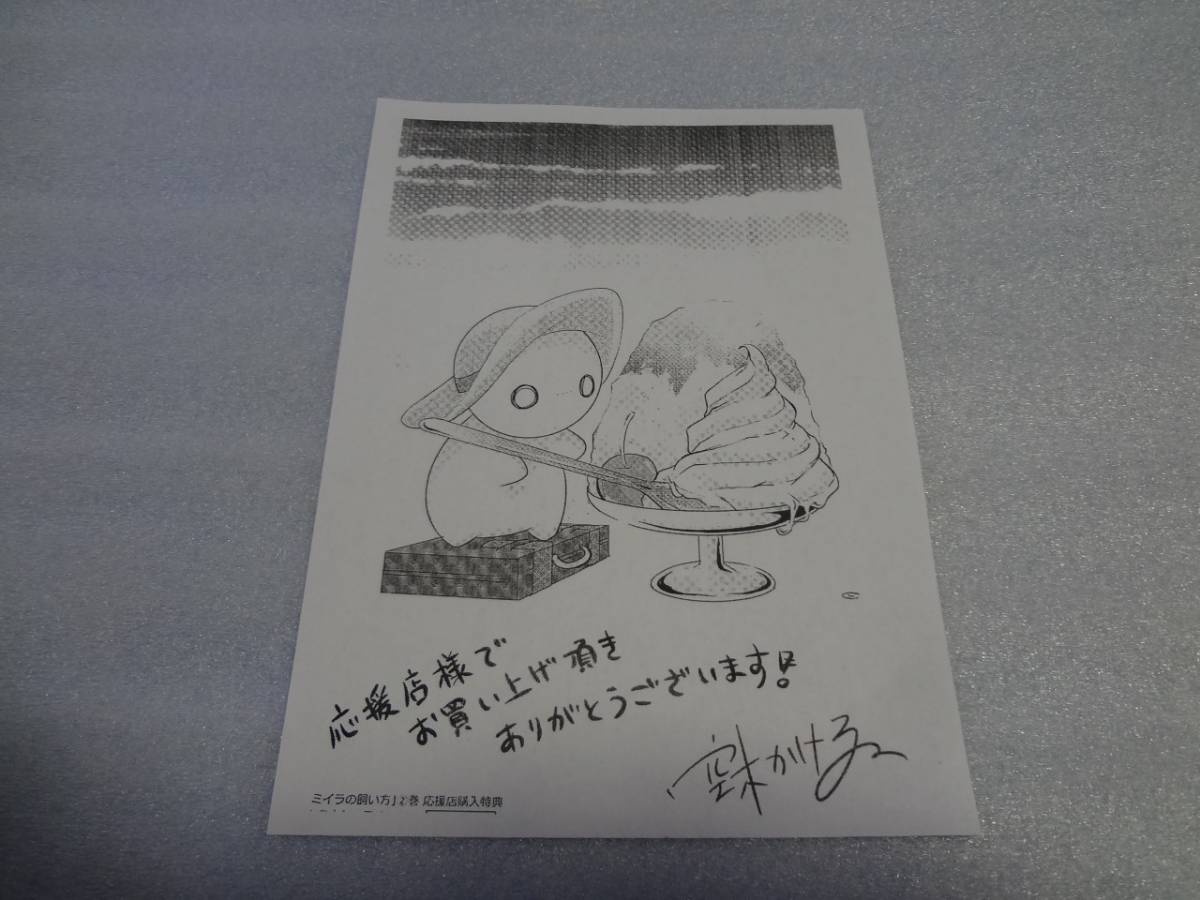 応援店様で
お買い上げ頂き
ありがとうございます!
空木かける
ミイラの飼い方」2巻 応援店購入特典